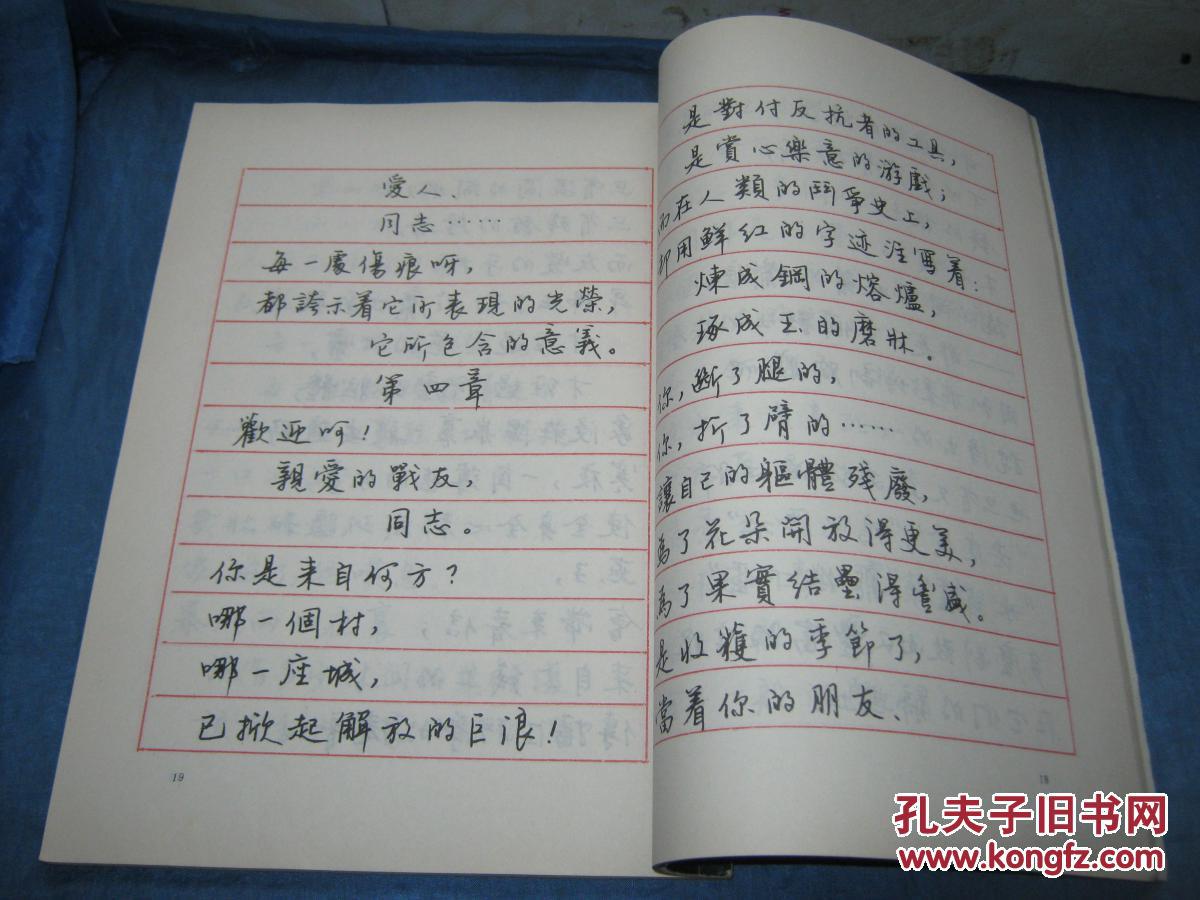 是對付反抗者的工具，
是賞心樂意的游戲；
而在人類的鬥爭史上，
却用鮮红的字迹注寫着：
煉成鋼的熔爐，
琢成玉的磨牀。
你，斷了腿的，
你，折了臂的……
讓自己的軀體殘廢，
爲了花朵開放得更美，
爲了果實結壘得豐盛。
是收穫的季節了，
當着你的朋友、
18
愛人、
同志……
每一處傷痕呀，
都誇示着它所表現的光榮，
它所包含的意義。
第四章
歡迎呵！
親愛的戰友，
同志。
你是來自何方？
哪一個村，
哪一座城，
已掀起解放的巨浪！
19
孔夫子旧书网
www.kongfz.com